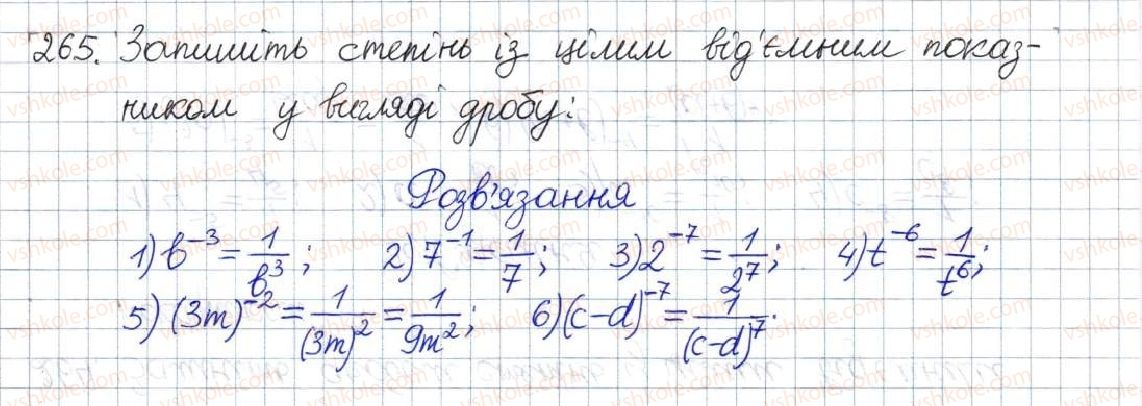 265. Запишіть степінь із цілим від'ємним показ-
ником у вигляді дробу:
Розв'язання
1) b⁻³ = 1/b³; 2) 7⁻¹ = 1/7; 3) 2⁻⁷ = 1/2⁷; 4) t⁻⁶ = 1/t⁶;
5) (3m)⁻² = 1/(3m)² = 1/9m²; 6) (c-d)⁻⁷ = 1/(c-d)⁷.